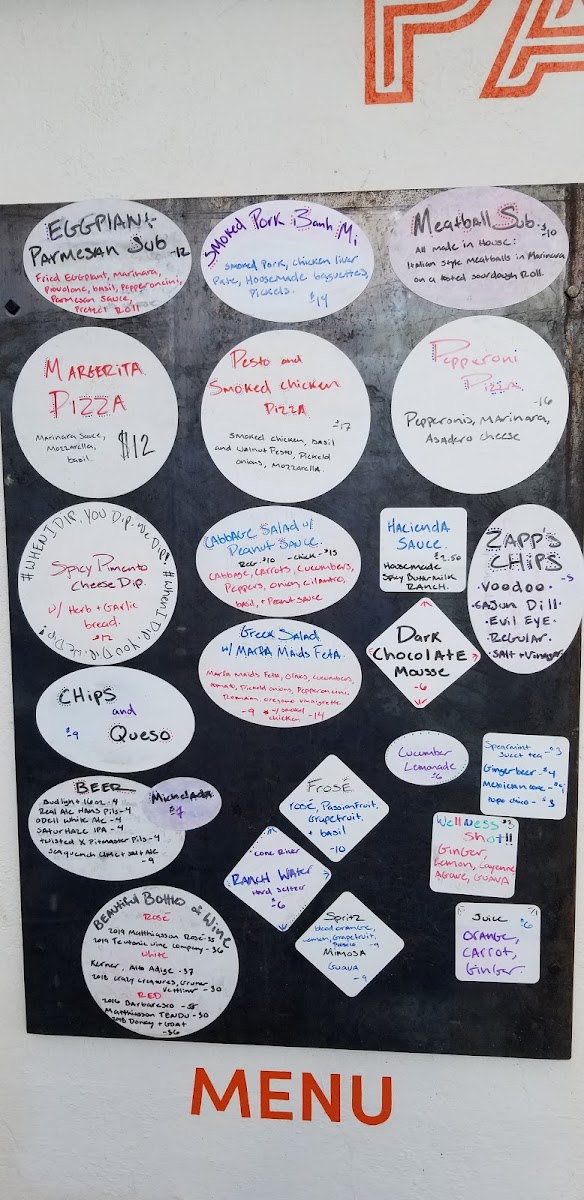 PA
EGGPlANt
PARMESAN Sub -12
Fried Eggplant, Marinara,
Provolone, basil, Pepperoncini,
Parmesan Sauce,
Pretzel Roll
Smoked Pork Banh Mi
Smoked Pork, chicken liver
Pate, Housemade baguettes,
Pickels.
$14
Meatball Sub -$10
All made in House:
Italian style Meatballs in Marinara
on a tosted sourdough Roll.
MARGERITA
PIZZA
Marinara Sauce,
Mozzarella,
basil.
$12
Pesto and
Smoked chicken
PIZZA
-17
Smoked chicken, basil
and Walnut Pesto, Pickeld
onions, Mozzarella.
Pepperoni
Pizza
-16
Pepperonis, Marinara,
Asadero cheese
#WHEN I DIP, YOU DIP, WE DIP! #WHEN I DIP, YOU DIP, WE DIP!
Spicy Pimento
Cheese Dip.
w/ Herb + Garlic
bread.
$12
CABBAGE SALAD w/
Peanut SAUCE.
Reg. $10 - chick - $15
CABBAGE, CARROTS, CUCUMBERS,
Peppers, onion, cilantro,
basil, + Peanut Sauce
HACIENDA
SAUCE.
$2.50
Housemade
Spicy Buttermilk
RANCH.
ZAPP'S
CHIPS
-5
· Voodoo.
· CAJun Dill.
· Evil Eye.
· Regular.
· SAlt + Vinegar
Greek Salad
w/ MARIA Maids FetA.
Maria Maids Feta, Olives, cucumbers,
tomato, Pickeld onions, Pepperoncini,
Romain, oregano vinaigrette.
- 9
chicken - 14
DARK
CHOCOLATE
Mousse
-6
CHips
and
Queso
$9
Cucumber
Lemonade
$6
Spearmint
Sweet tea - $3
Ginger beer - $4
Mexican coke - $4
topo chico - $3
BEER
Bud light 16oz - 4
Real Ale Hans Pils - 4
Odell White Ale - 4
Satur Haze IPA - 4
twisted X Pitmaster Pils - 4
Seaquench lime + salt Ale
- 9
Michelada
$7
Frosé
rosé, Passionfruit,
Grapefruit,
+ basil
-10
Lone River
RANCH WAter
Hard Seltzer
$
-6
Wellness $3
Shot!!
GinGer,
Lemon, Cayenne
Agave, GUAVA
Spritz
blood orange,
lemon, Grapefruit,
-9
MimosA
GUAVA
- 9
Juice $6
ORANGE,
CARROt,
GinGer.
Beautiful Bottles of Wine
ROSÉ
2019 Matthiasson Rosé - 35
2019 Teutonic Wine Company - 36
White
Kerner, Alto Adige - 37
2018 Crazy Creatures, Gruner
Veltliner - 30
RED
2016 Barbaresco - 58
Matthiasson TENDU - 30
2018 Donkey + GOAT
-36
MENU